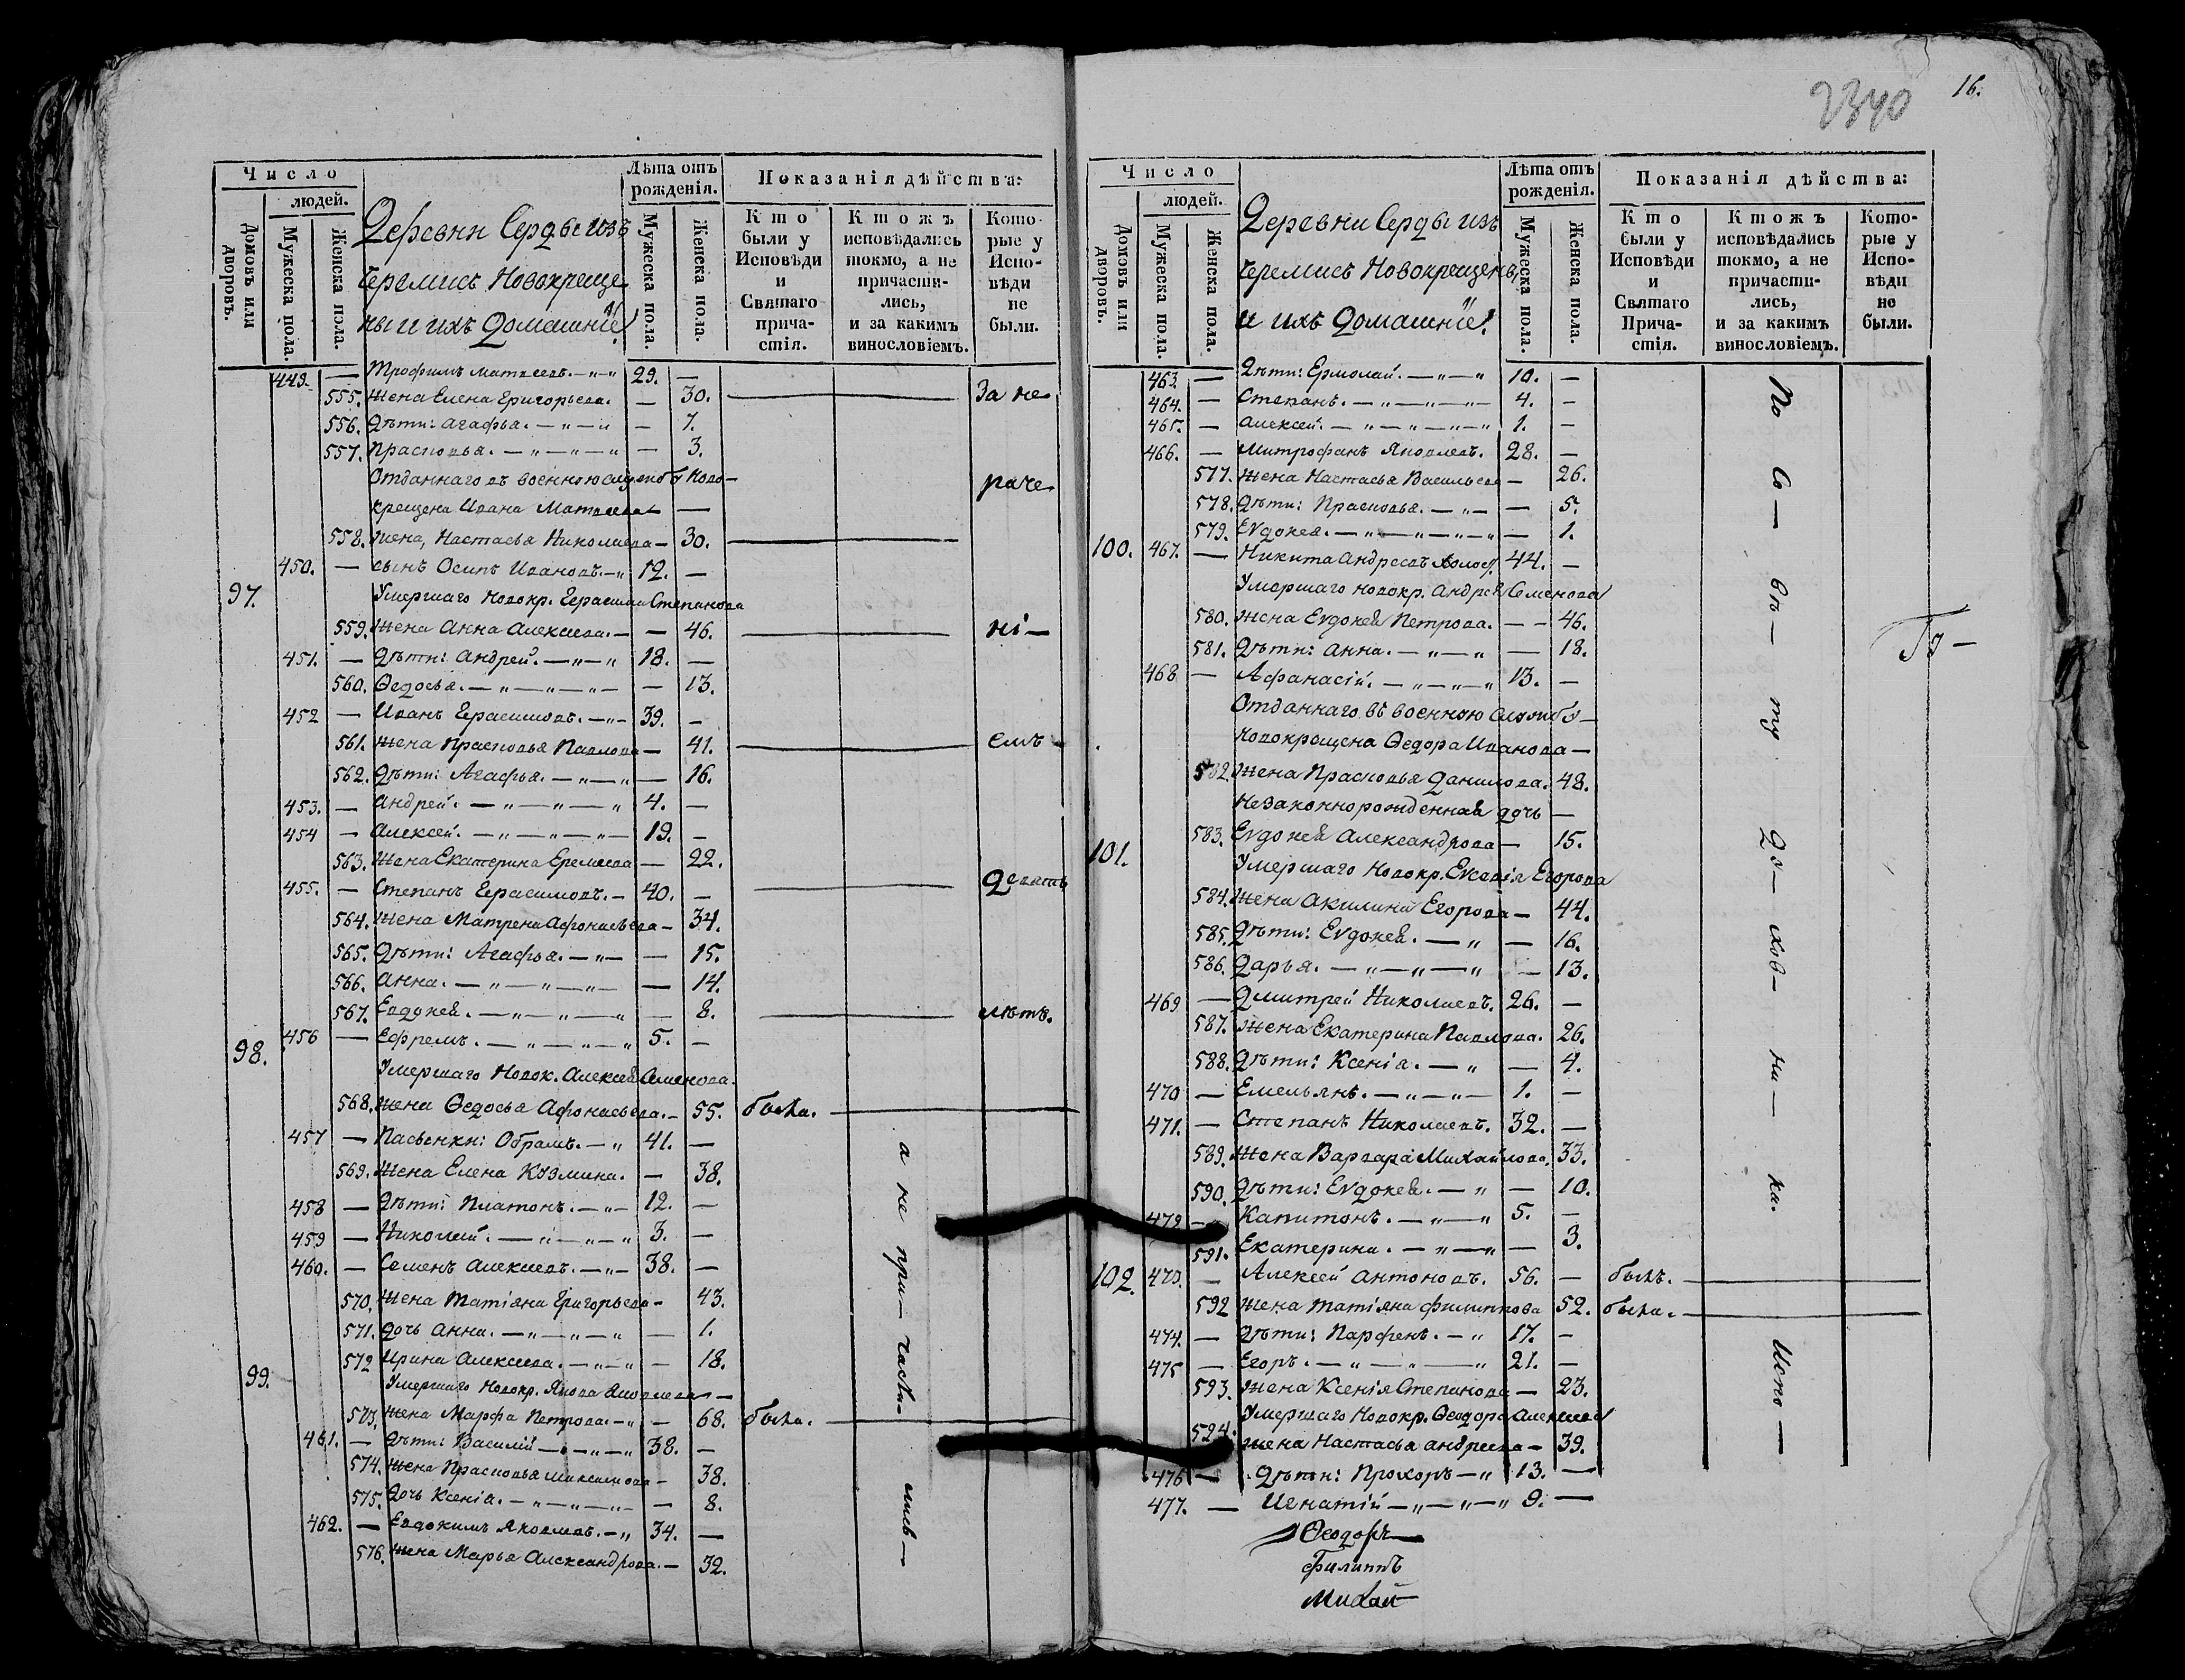 2340
16.
Число
людей.
Домовъ или дворовъ.
Мужеска пола.
Женска пола.
Деревни Серды изъ
Черемисъ Новокреще
ны и ихъ Домашніе
Лѣта отъ рожденія.
Мужеска пола.
Женска пола.
Показанія дѣйства:
Кто были у Исповѣди и Святаго причастія.
Ктожъ исповѣдались токмо, а не причастились, и за какимъ винословіемъ.
Которые у Исповѣди не были.
449. — Трофимъ Матвеевъ. — 29. —
555. Жена Елена Григорьева. — 30. — За не
556. Дѣти: Агафья. — — 7.
557. Прасковья. — — 3.
Отданнаго въ военною службу Ново-
крещена Ивана Матвеева — раче
558. Жена, Настасья Николаева — 30.
450. — сынъ Осипъ Ивановъ. — 12. —
97. Умершаго новокр. Герасима Степанова
559. Жена Анна Алексеева. — 46. — ні —
451. — Дѣти: Андрей. — 18. —
560. Ѳедосья. — — 13.
452 — Иванъ Герасимовъ. — 39. —
561. Жена Прасковья Павлова — 41. — емъ
562. Дѣти: Агафья. — — 16.
453. — Андрей. — 4. —
454 — Алексей. — 19. —
563. Жена Екатерина Еремеева — 22.
455. — Степанъ Герасимовъ. — 40. — девять
564. Жена Матрена Афонасьева — 34.
565. Дѣти: Агафья. — — 15.
566. Анна. — — 14.
567. Евдокея. — — 8. — лѣтъ.
456 — Ефремъ. — 5. —
98. Умершаго Новок. Алексея Семенова.
568. Жена Ѳедосья Афонасьева. — 55. была.
457 — Пасынки: Обрамъ. — 41. —
569. Жена Елена Козмина. — 38.
458 — Дѣти: Платонъ. — 12. —
459 — Николай. — 3. —
460. — Семенъ Алексеевъ. — 38. —
570. Жена Татіяна Григорьева — 43.
571. Дочь Анна. — — 1.
572 Ирина Алексеева. — — 18.
99. Умершаго Новокр. Якова Яковлева —
573. Жена Марфа Петрова. — 68. была.
461. — Дѣти: Василій — 38. —
574. Жена Прасковья Максимова — 38.
575. Дочь Ксенія. — — 8.
462. — Евдокимъ Яковлевъ. — 34. —
576. Жена Марья Александрова. — 32.
а не при — части — лись —
Число
людей.
Домовъ или дворовъ.
Мужеска пола.
Женска пола.
Деревни Серды изъ
Черемисъ Новокрещены
и ихъ домашніе.
Лѣта отъ рожденія.
Мужеска пола.
Женска пола.
Показанія дѣйства:
Кто были у Исповѣди и Святаго Причастія.
Ктожъ исповѣдались токмо, а не причастились, и за какимъ винословіемъ.
Которые у Исповѣди не были.
463. — Дѣти: Ермолай. — 10. —
464. — Степанъ. — 4. —
465. — Алексей. — 1. —
466. — Митрофанъ Яковлевъ. 28. —
577. Жена Настасья Васильева — 26.
578. Дѣти: Прасковья. — — 5.
579. Еѵдокея. — — 1.
100. 467. — Никита Андреевъ 44. —
Умершаго новокр. Андрея Семенова
580. Жена Еѵдокея Петрова. — 46.
581. Дѣти: Анна. — — 18.
468 — Афанасій. — 13. —
Отданнаго въ военною службу —
Новокрещена Ѳедора Иванова —
582. Жена Прасковья Данилова. 48.
Незаконнорожденная дочь —
583. Еѵдокея Александрова — 15.
101. Умершаго Новокр. Егорова
584. Жена Акилина Егорова — 44.
585. Дѣти: Еѵдокея. — — 16.
586. Дарья. — — 13.
469 — Дмитрей Николаевъ. 26. —
587. Жена Екатерина Павлова. 26.
588. Дѣти: Ксенія. — — 4.
470 — Емельянъ. — 1. —
471. — Степанъ Николаевъ. 32. —
589. Жена Варвара Михайлова. 33.
590. Дѣти: Еѵдокея. — — 10.
472 — Капитонъ. — 5. —
591. Екатерина. — — 3.
102. 473. — Алексей Антоновъ. 56. — былъ.
592 Жена Татіяна Филиппова 52. была.
474. — Дѣти: Парфенъ. — 17. —
475 — Егоръ. — 21. —
593. Жена Ксенія Степанова — 23.
Умершаго Новокр. Ѳеодора Алексеева
594. Жена Настасья Андреева — 39.
476 — Дѣти: Прохоръ — 13. —
477. — Игнатій — 9. —
По Со — вѣ — ту До — хов — на — ка.
Ѳеодоръ
Филиппъ
Михай